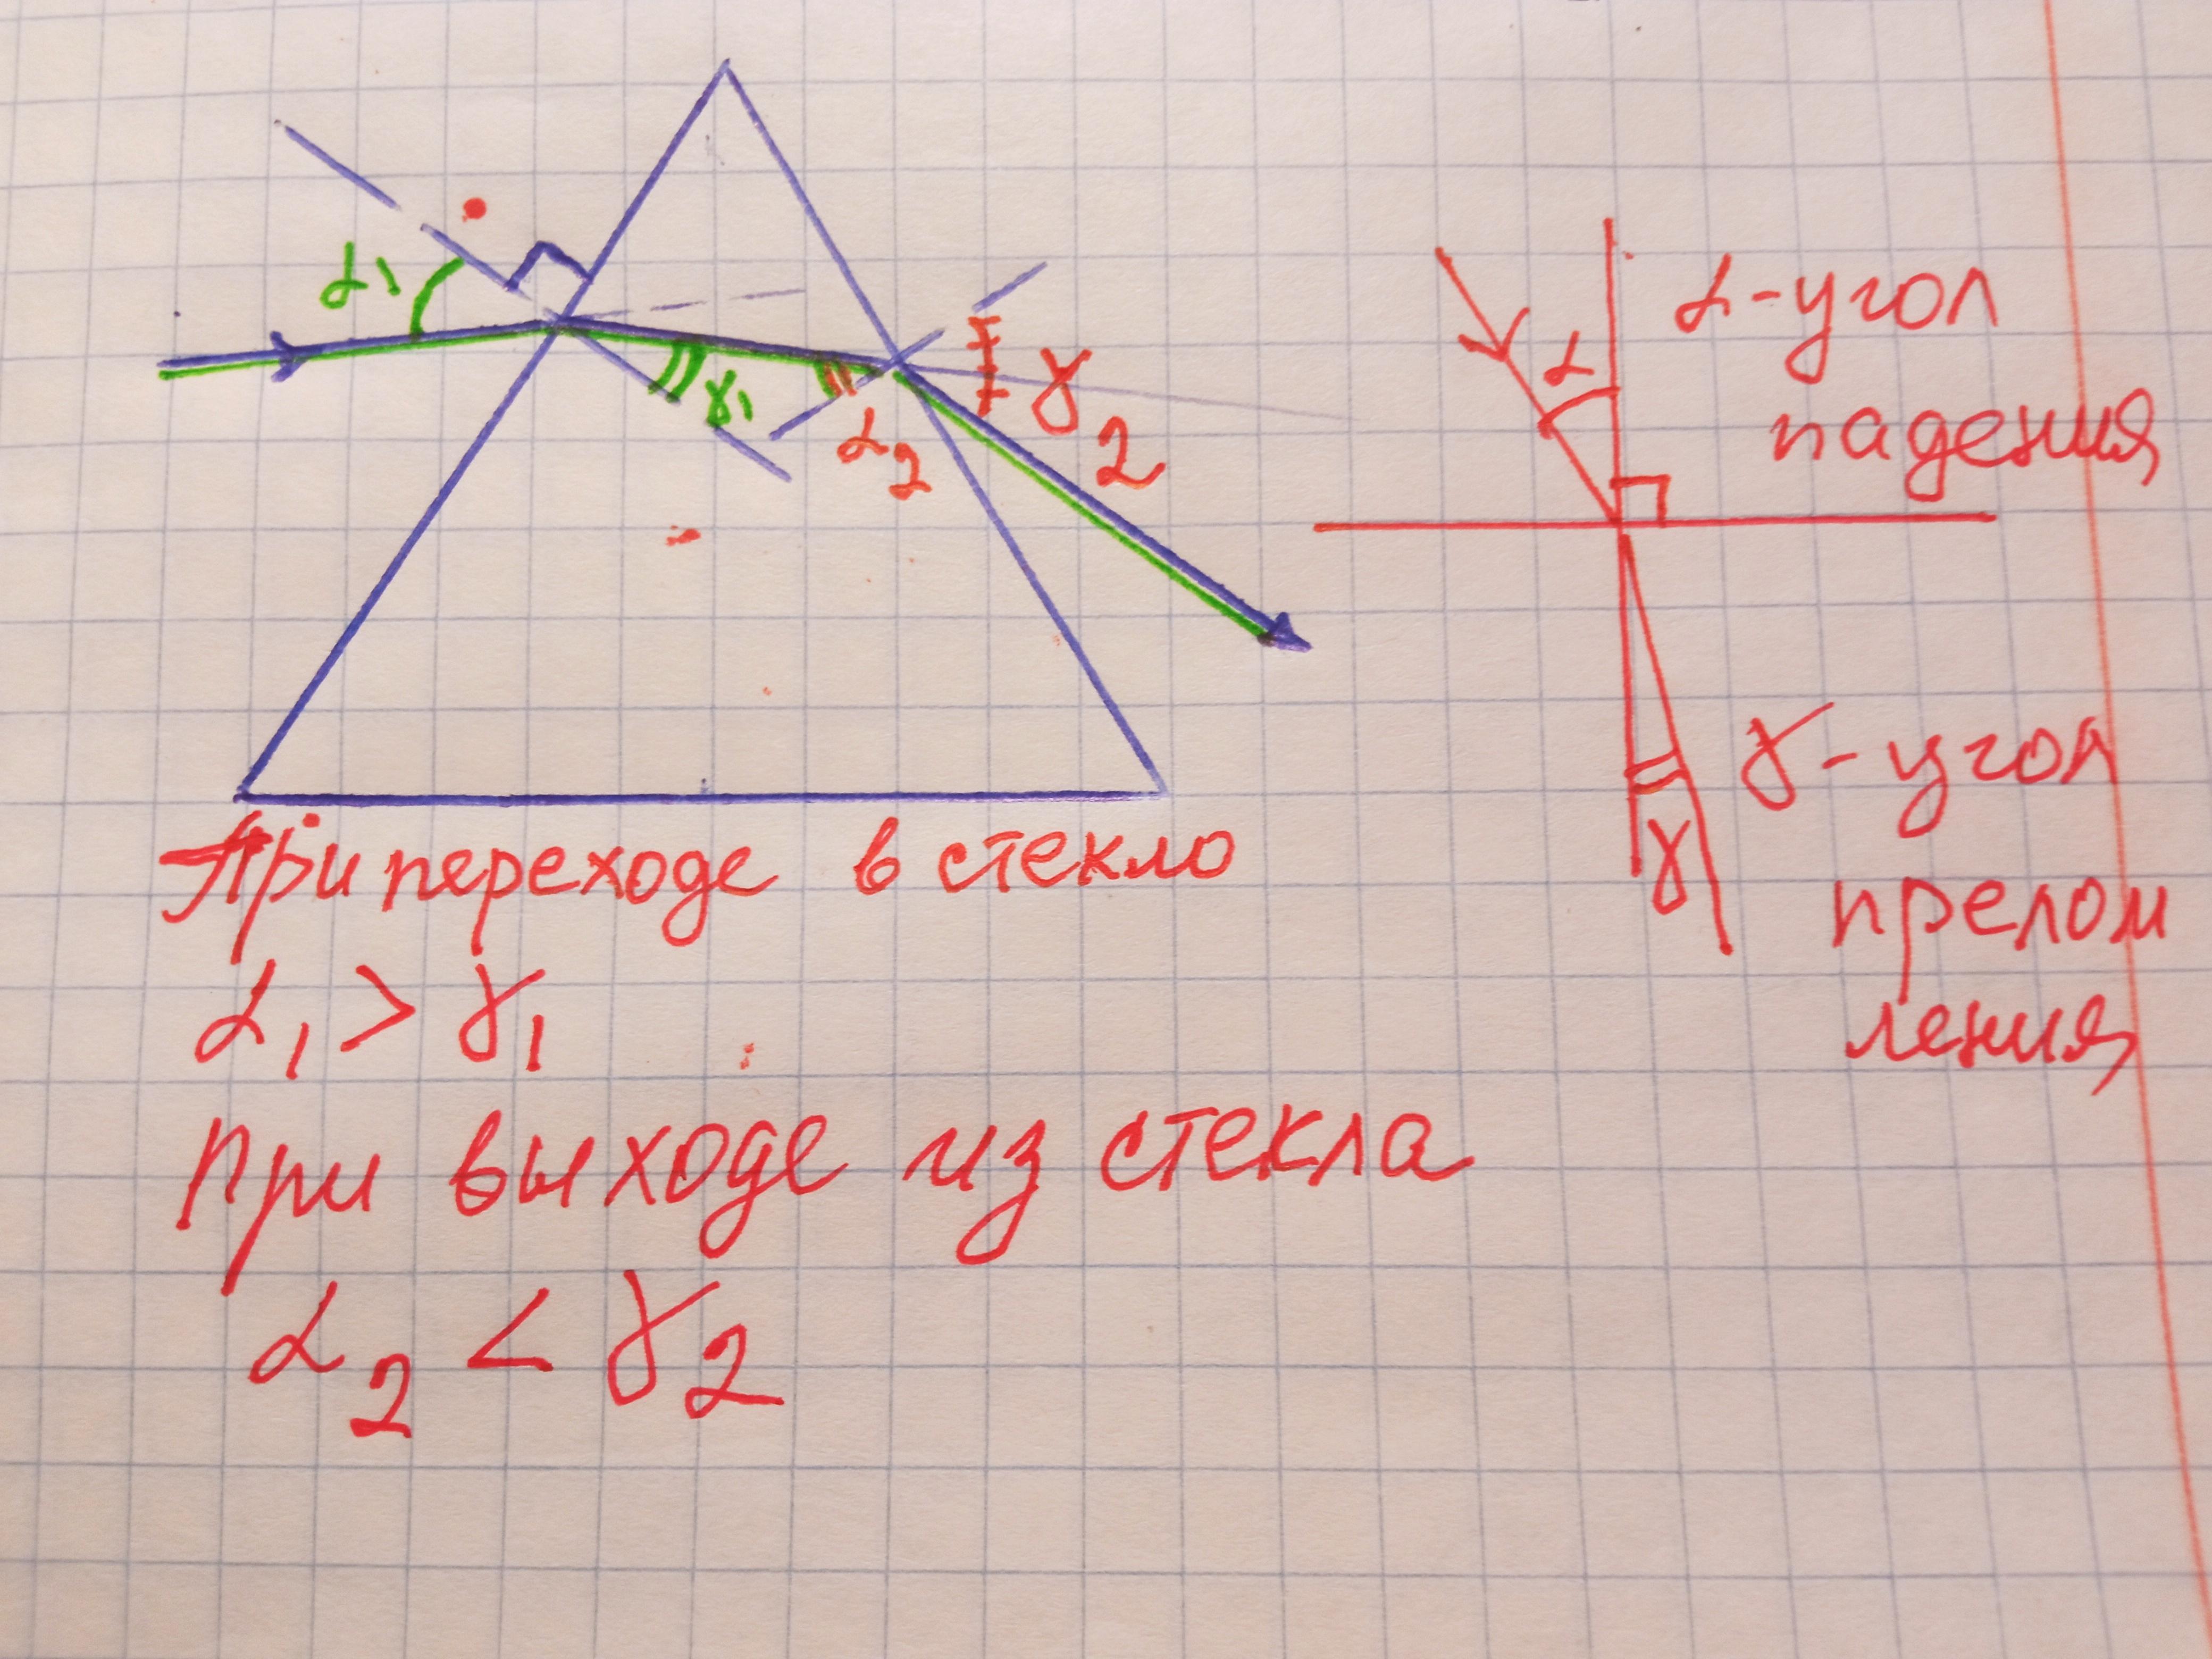 α1
γ1
α2
γ2
α
α-угол
падения
γ
γ-угол
прелом
ления
При переходе в стекло
α1 > γ1
При выходе из стекла
α2 < γ2